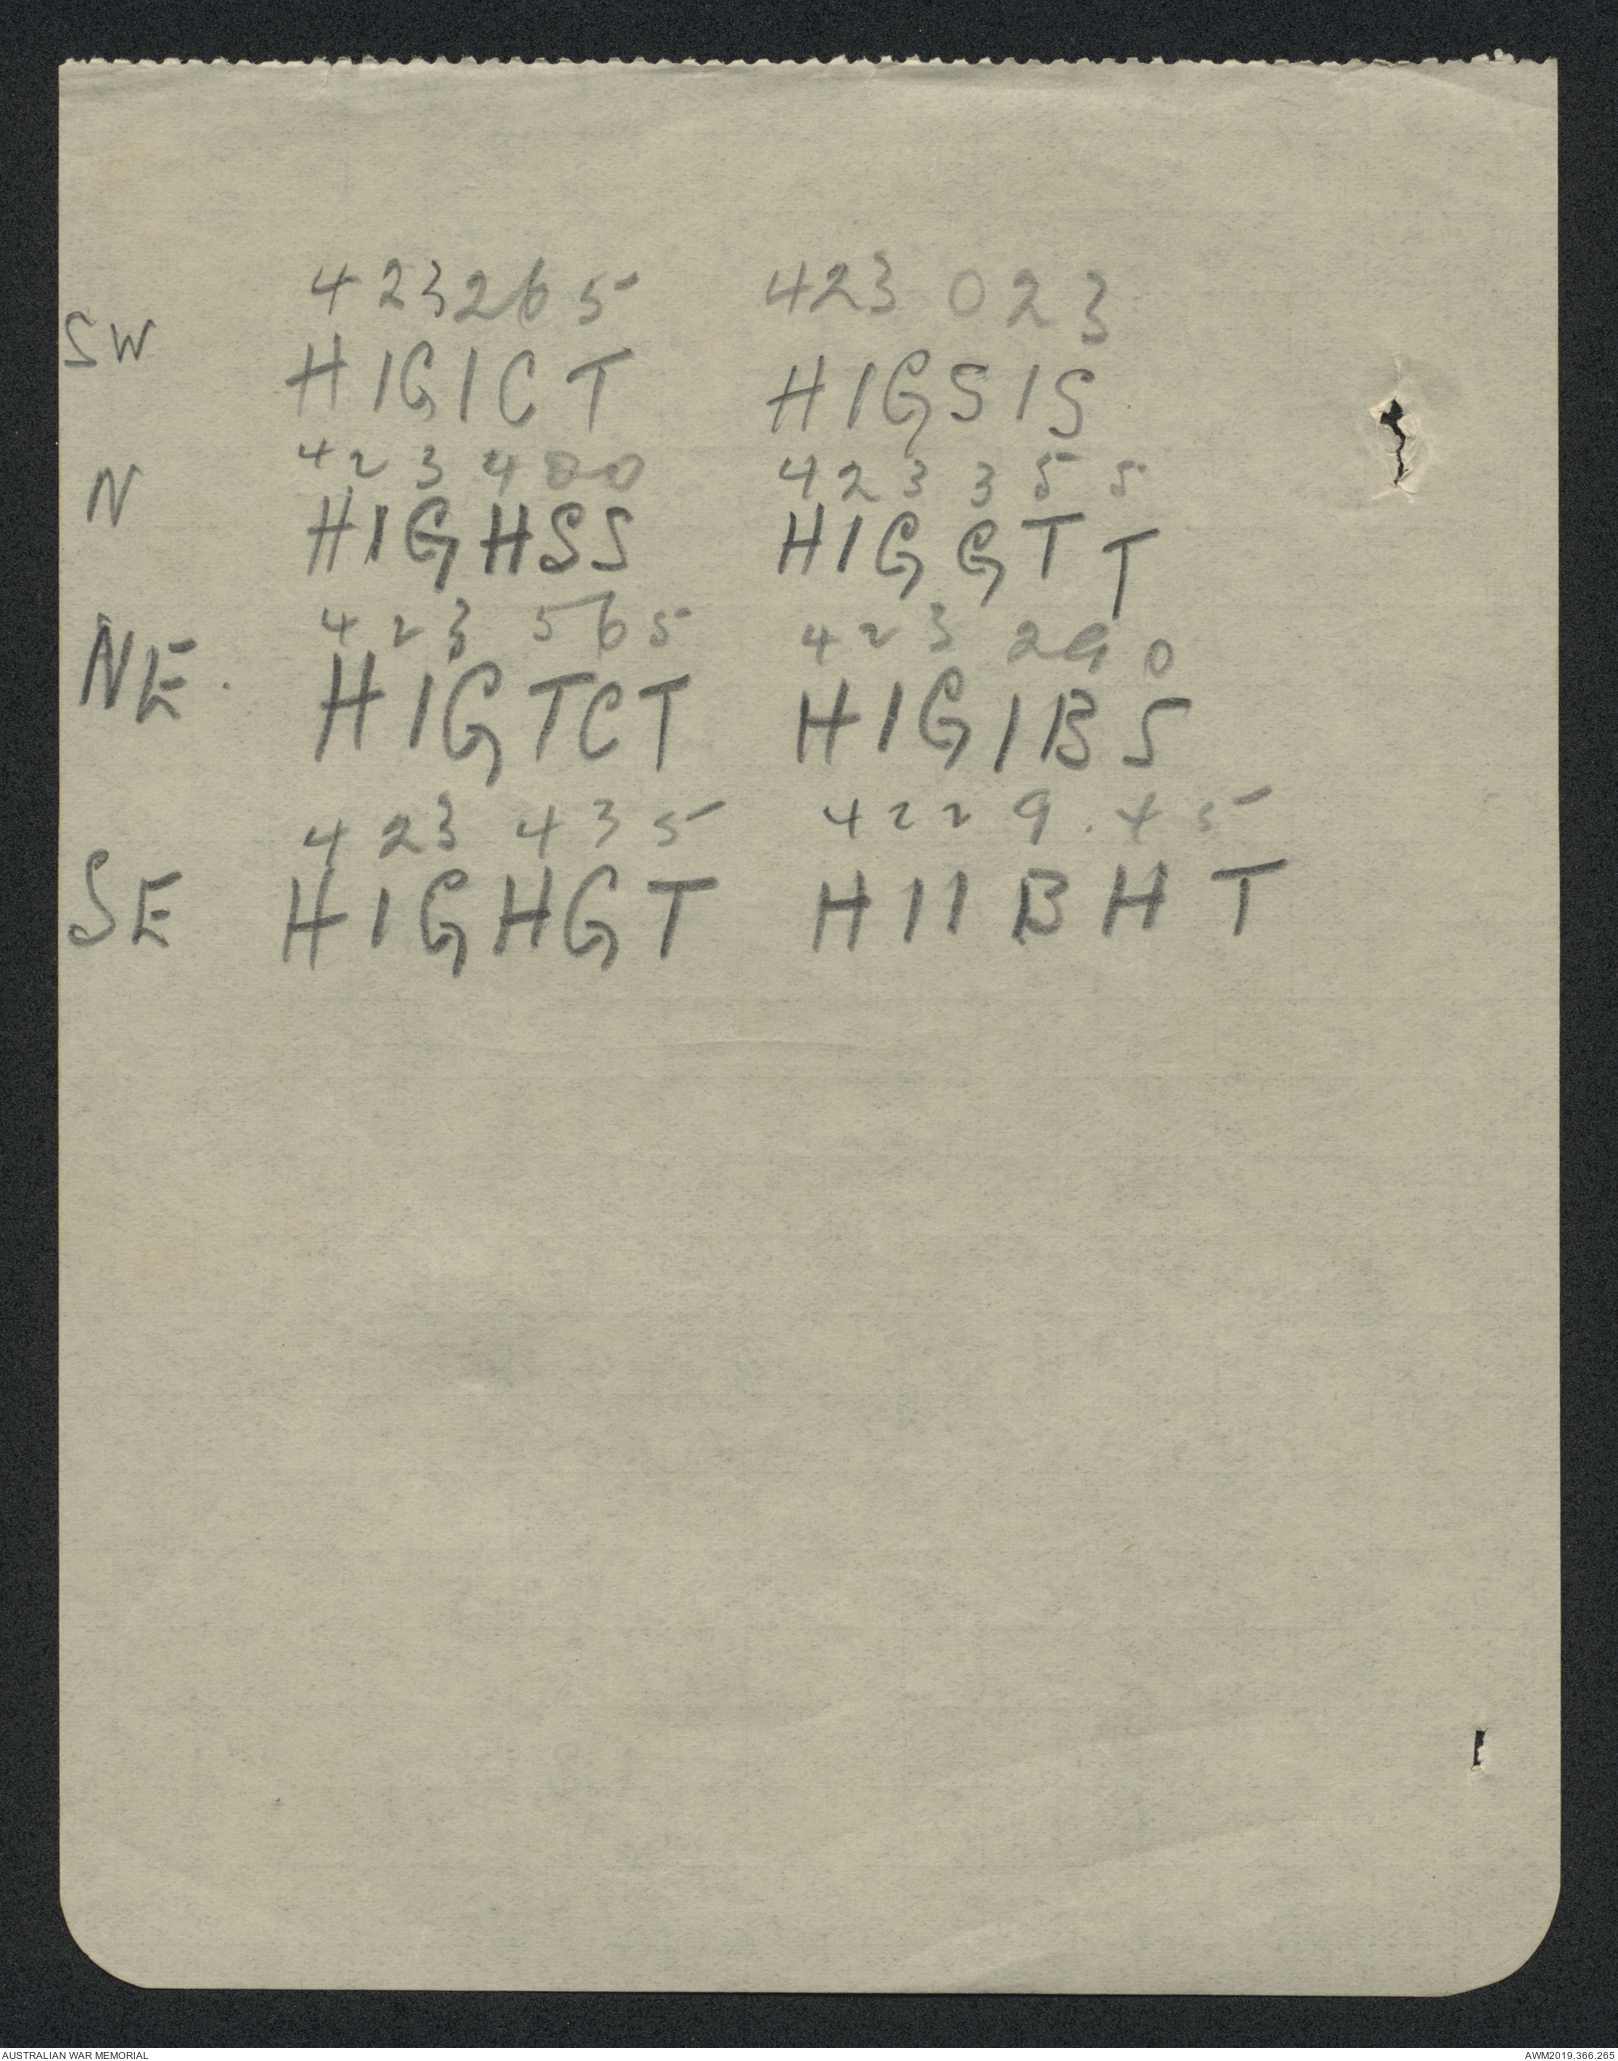 423265 423 023
SW HIGICT HIGSIS
423 400 423 355
N HIGHSS HIGGTT
423 565 423 290
NE. HIGTCT HIGIBS
423 435 422 9.45
SE HIGHGT HIIBHT
AUSTRALIAN WAR MEMORIAL AWM2019.366.265